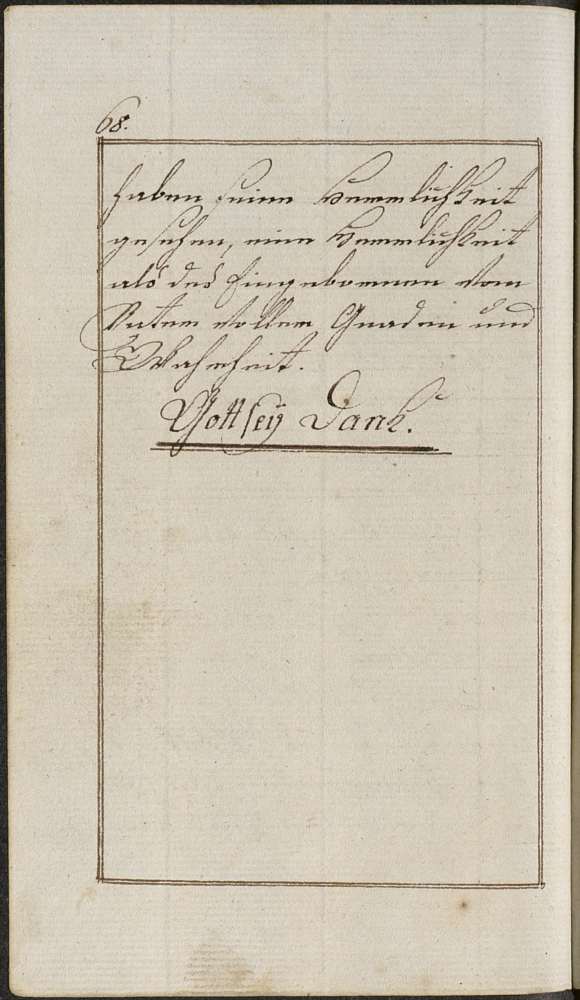 68.
haben seine Herrlichkeit
gesehen, eine Herrlichkeit
als des Eingebornen vom
Vater voller Gnaden und
Wahrheit.
Gott seÿ Dank.